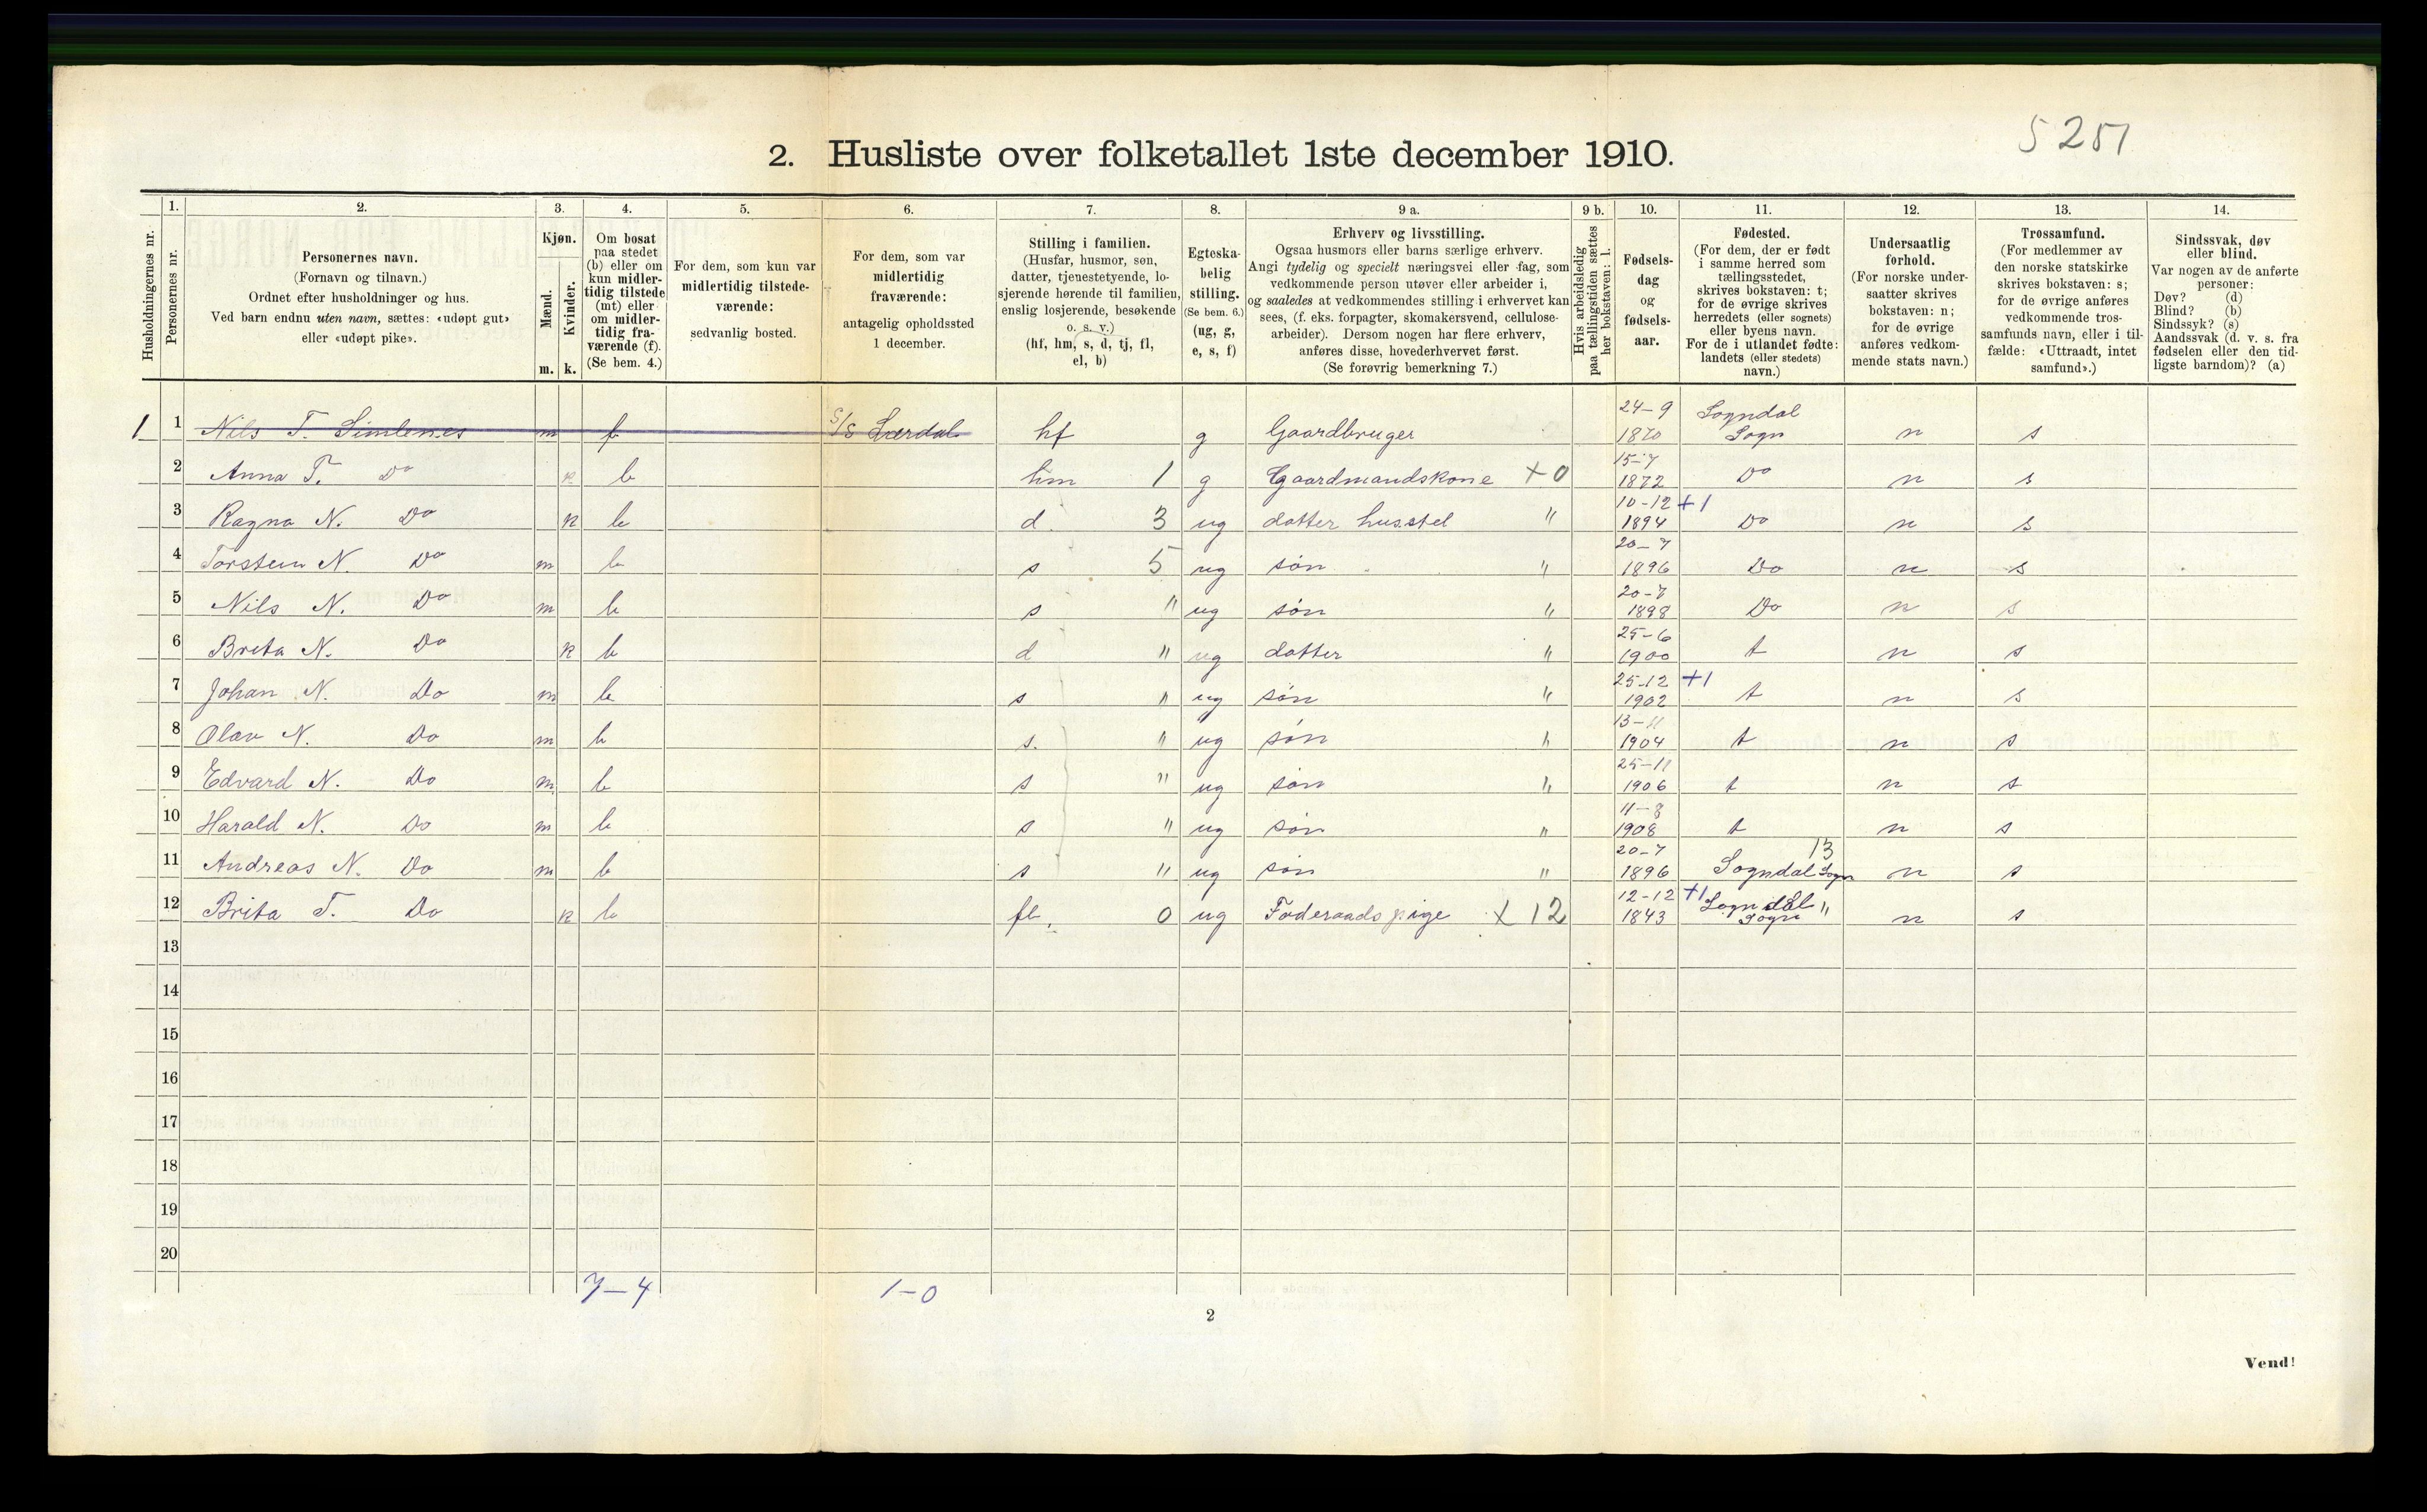 5251
2. Husliste over folketallet 1ste december 1910.
Husholdningernes nr.
1.
Personernes nr.
2.
Personernes navn.
(Fornavn og tilnavn.)
Ordnet efter husholdninger og hus.
Ved barn endnu uten navn, sættes: «udøpt gut»
eller «udøpt pike».
3.
Kjøn.
Mænd.
Kvinder.
m. k.
4.
Om bosat
paa stedet
(b) eller om
kun midler-
tidig tilstede
(mt) eller
om midler-
tidig fra-
værende (f).
(Se bem. 4.)
5.
For dem, som kun var
midlertidig tilstede-
værende:
sedvanlig bosted.
6.
For dem, som var
midlertidig
fraværende:
antagelig opholdssted
1 december.
7.
Stilling i familien.
(Husfar, husmor, søn,
datter, tjenestetyende, lo-
sjerende hørende til familien,
enslig losjerende, besøkende
o. s. v.)
(hf, hm, s, d, tj, fl,
el, b)
8.
Egteska-
belig
stilling.
(Se bem. 6.)
(ug, g,
e, s, f)
9 a.
Erhverv og livsstilling.
Ogsaa husmors eller barns særlige erhverv.
Angi tydelig og specielt næringsvei eller fag, som
vedkommende person utøver eller arbeider i,
og saaledes at vedkommendes stilling i erhvervet kan
sees, (f. eks. forpagter, skomakersvend, cellulose-
arbeider). Dersom nogen har flere erhverv,
anføres disse, hovederhvervet først.
(Se forøvrig bemerkning 7.)
9 b.
Hvis arbeidsledig
paa tællingstiden sættes
her bokstaven: l.
10.
Fødsels-
dag
og
fødsels-
aar.
11.
Fødested.
(For dem, der er født
i samme herred som
tællingsstedet,
skrives bokstaven: t;
for de øvrige skrives
herredets (eller sognets)
eller byens navn.
For de i utlandet fødte:
landets (eller stedets)
navn.)
12.
Undersaatlig
forhold.
(For norske under-
saatter skrives
bokstaven: n;
for de øvrige
anføres vedkom-
mende stats navn.)
13.
Trossamfund.
(For medlemmer av
den norske statskirke
skrives bokstaven: s;
for de øvrige anføres
vedkommende tros-
samfunds navn, eller i til-
fælde: «Uttraadt, intet
samfund».)
14.
Sindssvak, døv
eller blind.
Var nogen av de anførte
personer:
Døv? (d)
Blind? (b)
Sindssyk? (s)
Aandssvak (d. v. s. fra
fødselen eller den tid-
ligste barndom)? (a)
1 1 Nils T. Simlenes m S/S Lærdal hf g Gaardbruger 24-9 1870 Sogndal Sogn n s
2 Anna T. Do k b hm 1 g Gaardmandskone +0 15-7 1872 Do n s
3 Ragna N. Do k b d. 3 ug datter husstel " 10-12 +1 1894 Do n s
4 Torstein N. Do m b s 5 ug søn " 20-7 1896 Do n s
5 Nils N. Do m b s " ug søn " 1898 Do n s
6 Brita N. Do k b d " ug datter " 25-6 1900 t n s
7 Johan N. Do m b s " ug søn " 25-12 +1 1902 t n s
8 Olav N. Do m b s. " ug søn " 13-11 1904 t n s
9 Edvard N. Do m b s " ug søn " 25-11 1906 t n s
10 Harald N. Do m b s " ug søn " 1908 t n s
11 Andreas N. Do m b s " ug søn " 20-7 1896 13 Sogndal Sogn n s
12 Brita T. Do k b fl. 0 ug Føderaadspige + 12 12-12 +1 1843 Sogndal " Sogn n s
13
14
15
16
17
18
19
20
7-4 1-0
2
Vend!